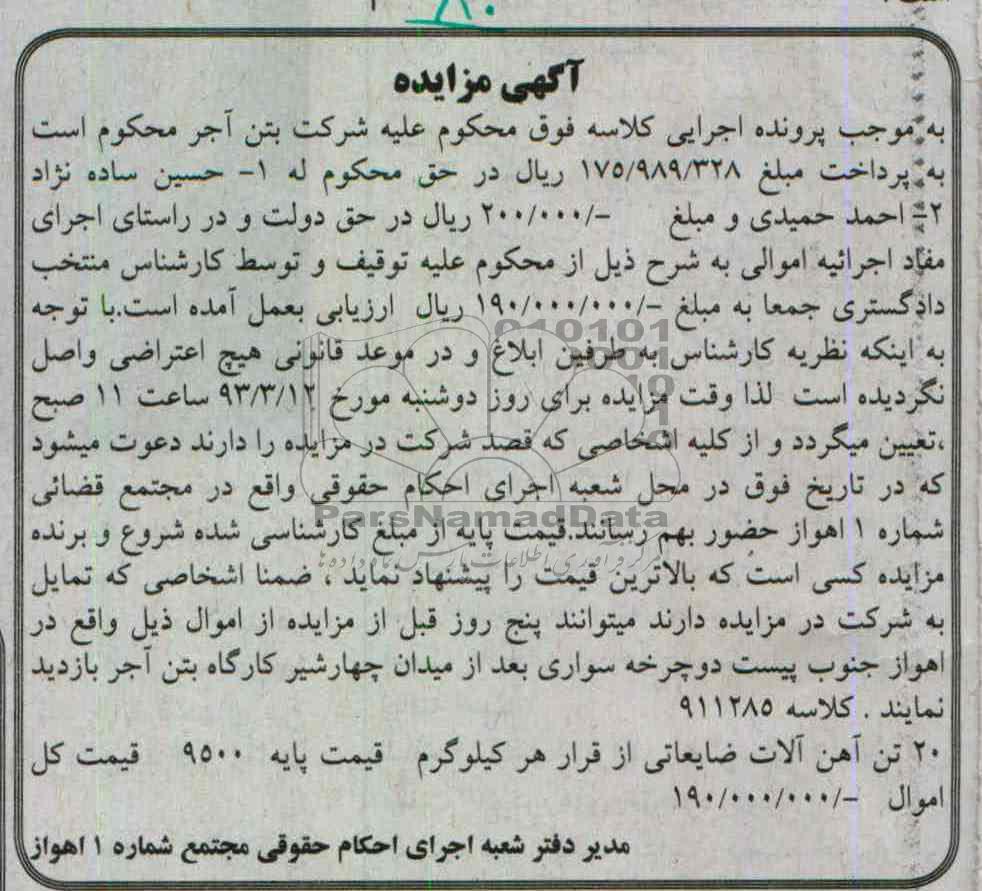 ۸۰
آگهی مزایده
به موجب پرونده اجرایی کلاسه فوق محکوم علیه شرکت بتن آجر محکوم است
به پرداخت مبلغ ۱۷۵/۹۸۹/۳۲۸ ریال در حق محکوم له ۱- حسین ساده نژاد
۲- احمد حمیدی و مبلغ -/۲۰۰/۰۰۰ ریال در حق دولت و در راستای اجرای
مفاد اجرائیه اموالی به شرح ذیل از محکوم علیه توقیف و توسط کارشناس منتخب
دادگستری جمعا به مبلغ -/۱۹۰/۰۰۰/۰۰۰ ریال ارزیابی بعمل آمده است.با توجه
به اینکه نظریه کارشناس به طرفین ابلاغ و در موعد قانونی هیچ اعتراضی واصل
نگردیده است لذا وقت مزایده برای روز دوشنبه مورخ ۹۳/۳/۱۲ ساعت ۱۱ صبح
،تعیین میگردد و از کلیه اشخاصی که قصد شرکت در مزایده را دارند دعوت میشود
که در تاریخ فوق در محل شعبه اجرای احکام حقوقی واقع در مجتمع قضائی
شماره ۱ اهواز حضور بهم رسانند.قیمت پایه از مبلغ کارشناسی شده شروع و برنده
مزایده کسی است که بالاترین قیمت را پیشنهاد نماید ، ضمنا اشخاصی که تمایل
به شرکت در مزایده دارند میتوانند پنج روز قبل از مزایده از اموال ذیل واقع در
اهواز جنوب پیست دوچرخه سواری بعد از میدان چهارشیر کارگاه بتن آجر بازدید
نمایند . کلاسه ۹۱۱۲۸۵
۲۰ تن آهن آلات ضایعاتی از قرار هر کیلوگرم قیمت پایه ۹۵۰۰ قیمت کل
اموال -/۱۹۰/۰۰۰/۰۰۰
مدیر دفتر شعبه اجرای احکام حقوقی مجتمع شماره ۱ اهواز
ParsNamadData